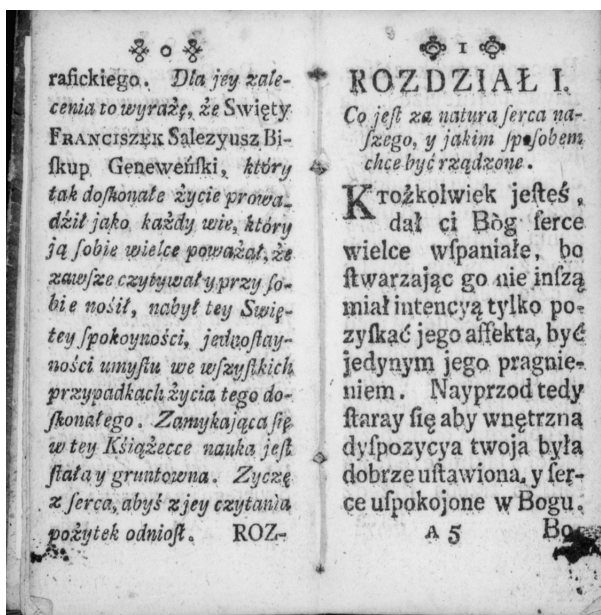 0
raſickiego. Dla jey zale-
cenia to wyrażę, że Swięty
FRANCISZEK Salezyusz Bi-
ſkup Geneweńſki, który
tak doſkonałe życie prowa-
dził jako każdy wie, który
ją ſobie wielce poważał, że
zawſze czytywał y przy ſo-
bie noſił, nabył tey Swię-
tey ſpokoyności, jednoſtay-
ności umyſłu we wſzyſtkich
przypadkach życia tego do-
ſkonałego. Zamykająca ſię
w tey Kśiążecce nauka jeſt
ſtała y gruntowna. Zyczę
z ſerca, abyś z jey czytania
pożytek odnioſł. ROZ-
1
ROZDZIAŁ I.
Co jeſt za natura ſerca na-
ſzego, y jakim ſpoſobem
chce być rządzone.
KTożkolwiek jeſteś,
dał ci Bòg ſerce
wielce wſpaniałe, bo
ſtwarzając go nie inſzą
miał intencyą tylko po-
zyſkać jego affekta, być
jedynym jego pragnie-
niem. Nayprzod tedy
ſtaray ſię aby wnętrzna
dyſpozycya twoja była
dobrze uſtawiona, y ſer-
ce uſpokojone w Bogu.
A 5 Bo-